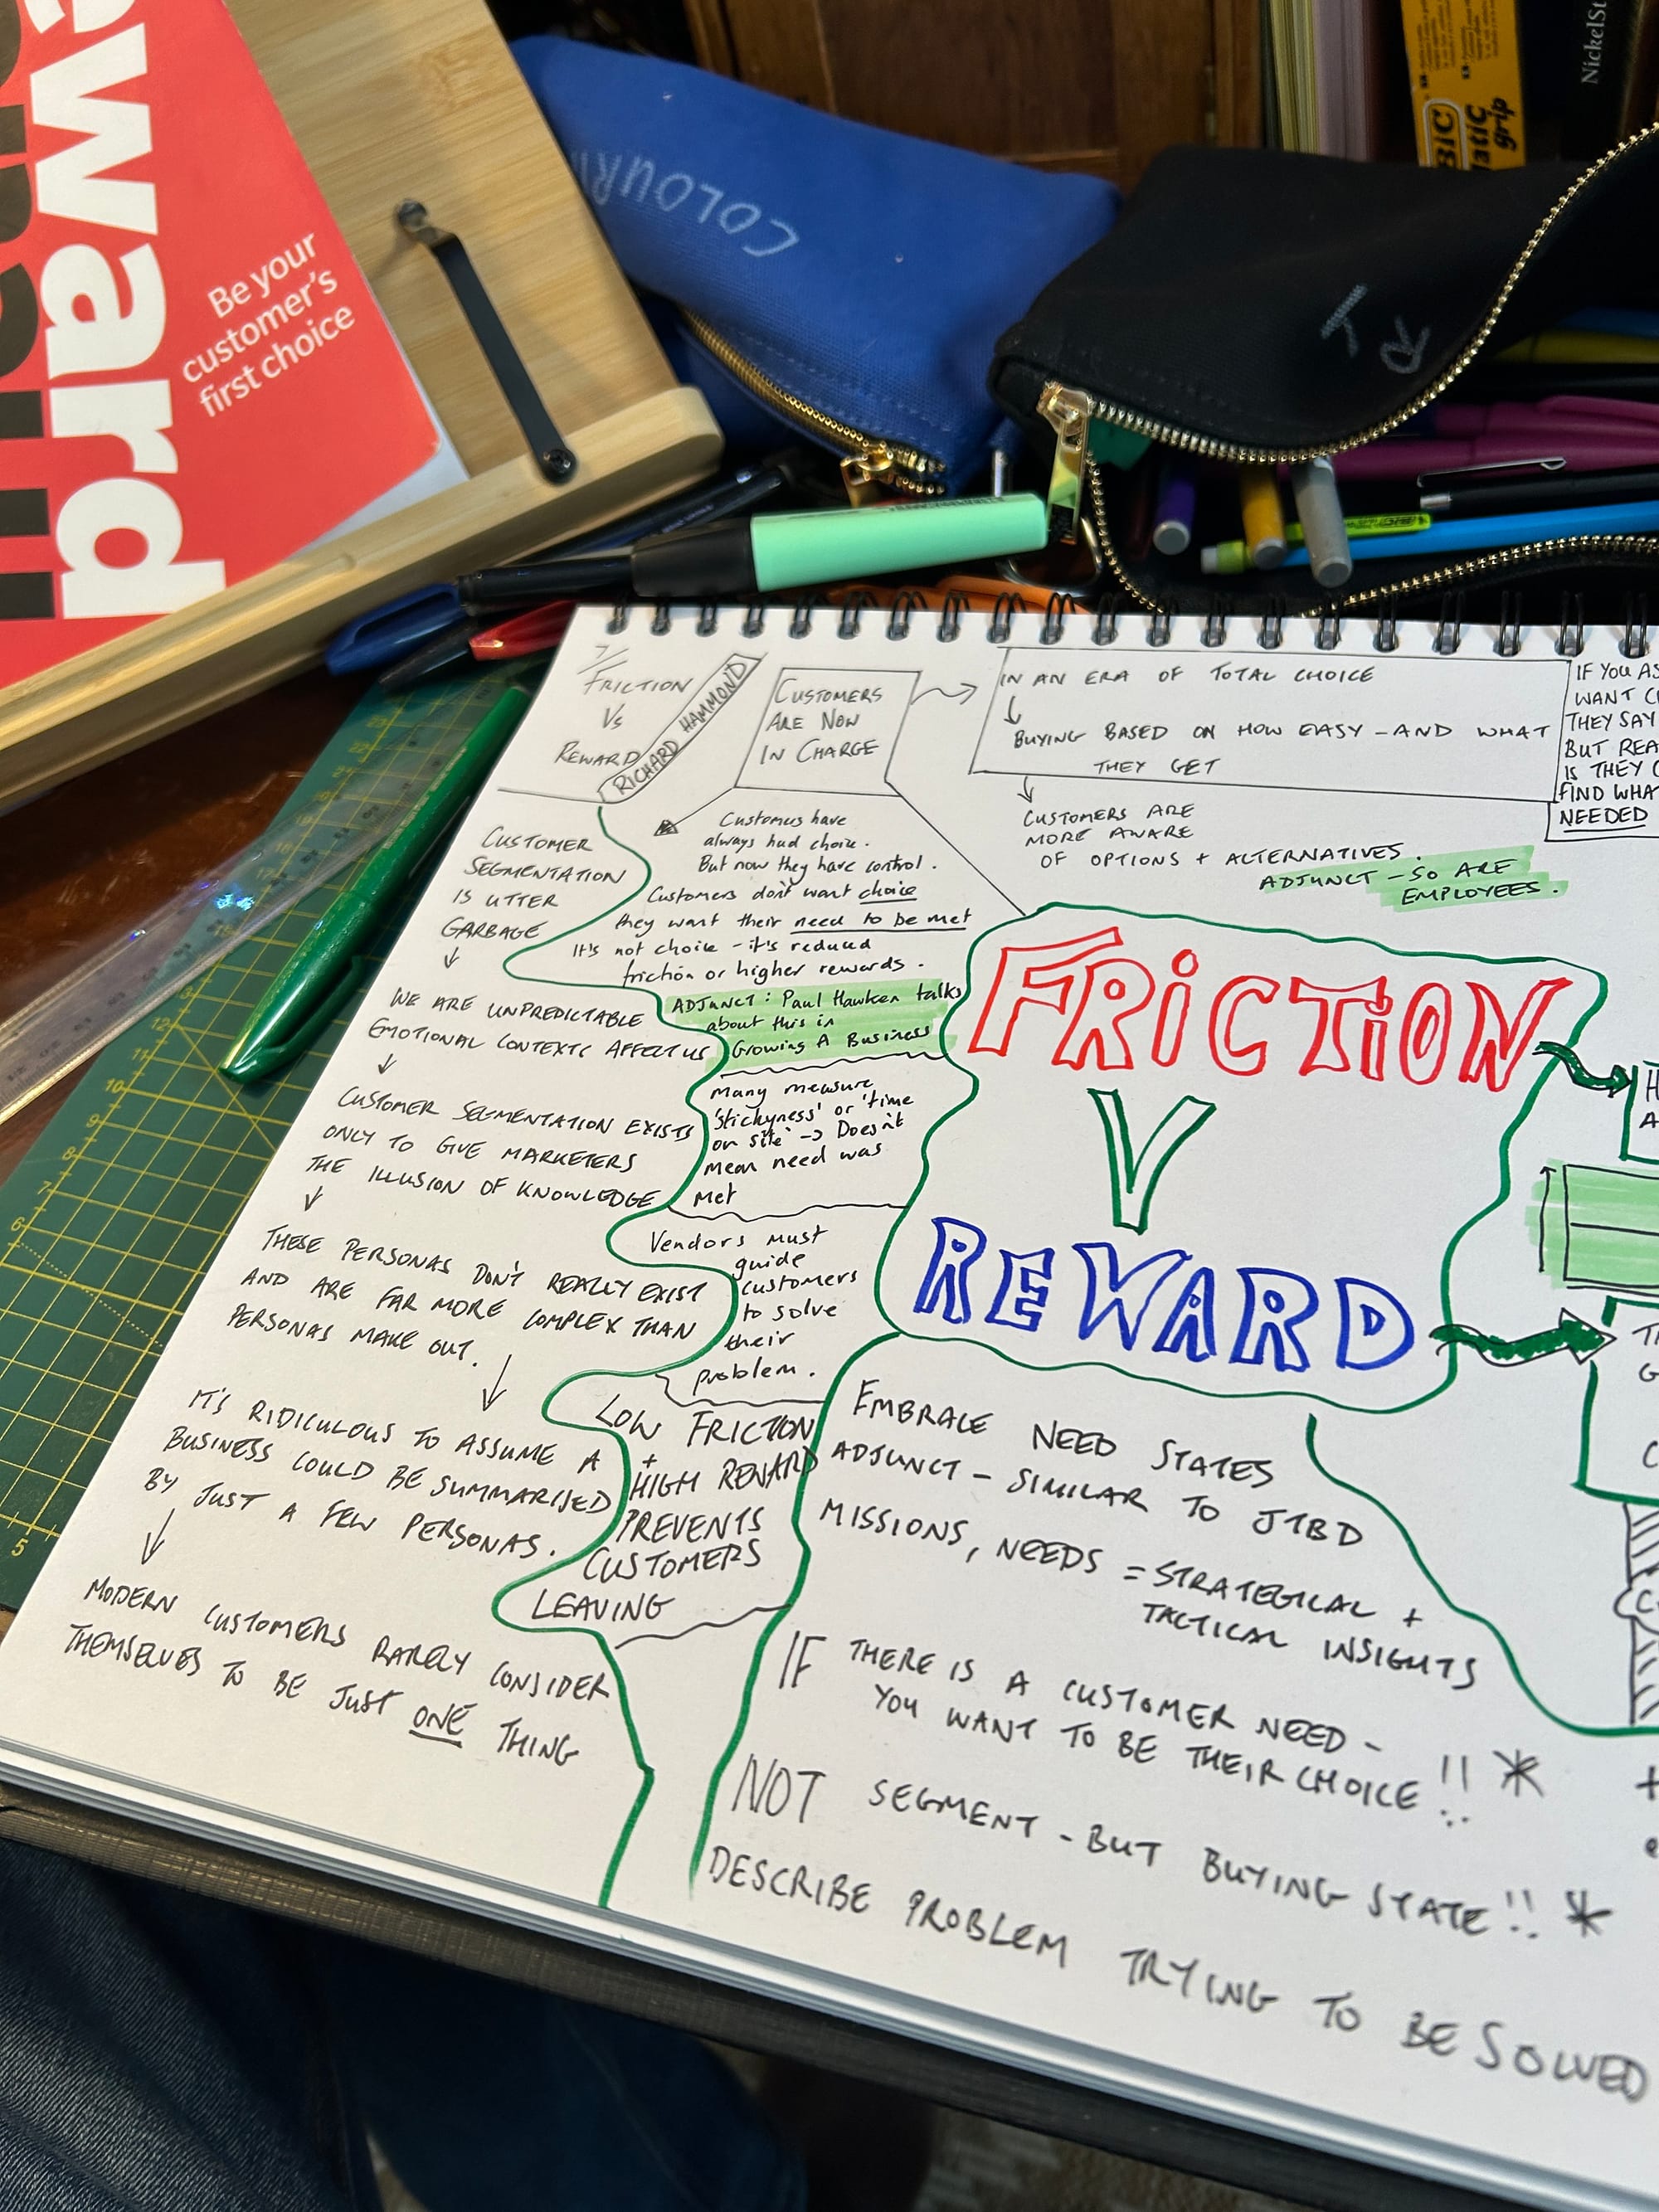 ward
Be your
customer's
first choice
COLOUR
RY
BIC
matic
grip
NickelSt
7/
FRICTION
Vs
REWARD
RICHARD HAMMOND
CUSTOMERS
ARE NOW
IN CHARGE
IN AN ERA OF TOTAL CHOICE
BUYING BASED ON HOW EASY - AND WHAT
THEY GET
IF YOU AS
WANT C
THEY SAY
BUT REA
IS THEY C
FIND WHA
NEEDED
CUSTOMERS ARE
MORE AWARE
OF OPTIONS + ALTERNATIVES.
ADJUNCT - SO ARE
EMPLOYEES.
CUSTOMER
SEGMENTATION
IS UTTER
GARBAGE
WE ARE UNPREDICTABLE
EMOTIONAL CONTEXTS AFFECT US
CUSTOMER SEGMENTATION EXISTS
ONLY TO GIVE MARKETERS
THE ILLUSION OF KNOWLEDGE
THESE PERSONAS DON'T REALLY EXIST
AND ARE FAR MORE COMPLEX THAN
PERSONAS MAKE OUT.
IT'S RIDICULOUS TO ASSUME A
BUSINESS COULD BE SUMMARISED
BY JUST A FEW PERSONAS.
MODERN CUSTOMERS RARELY CONSIDER
THEMSELVES TO BE JUST ONE THING
Customers have
always had choice.
But now they have control.
Customers don't want choice
they want their need to be met
It's not choice - it's reduced
friction or higher rewards.
ADJUNCT: Paul Hawken talks
about this in
Growing A Business
Many measure
'stickyness' or 'time
on site' -> Doesn't
mean need was
met
Vendors must
guide
customers
to solve
their
problem.
LOW FRICTION
+
HIGH REWARD
PREVENTS
CUSTOMERS
LEAVING
FRICTION
V
REWARD
EMBRACE NEED STATES
ADJUNCT - SIMILAR TO JTBD
MISSIONS, NEEDS = STRATEGICAL +
TACTICAL INSIGHTS
IF THERE IS A CUSTOMER NEED -
YOU WANT TO BE THEIR CHOICE!! *
NOT SEGMENT - BUT BUYING STATE!! *
DESCRIBE PROBLEM TRYING TO BE SOLVED
H
A
G
C